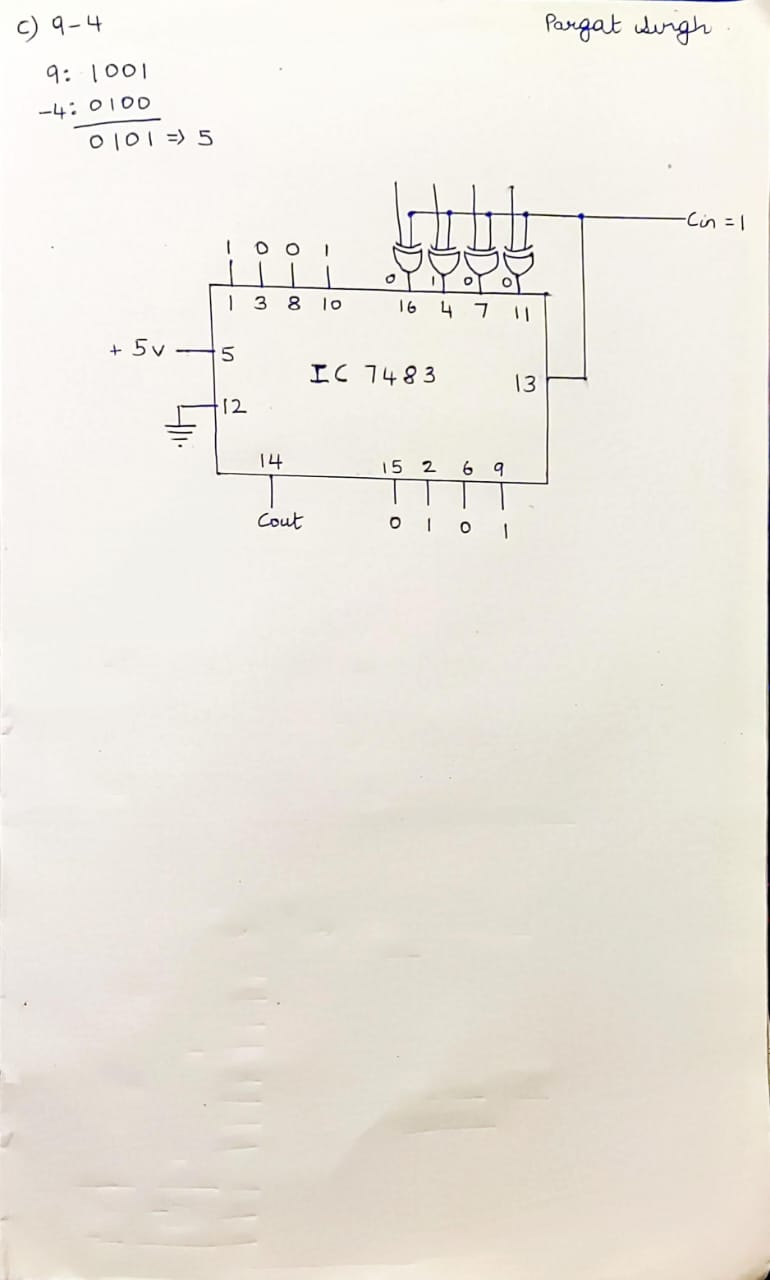 c) 9-4
Pargat Singh
9: 1001
-4: 0100
0101 => 5
Cin = 1
1 0 0 1
0 1 0 0
1 3 8 10 16 4 7 11
+5v 5
IC 7483
13
12
14 15 2 6 9
Cout 0 1 0 1